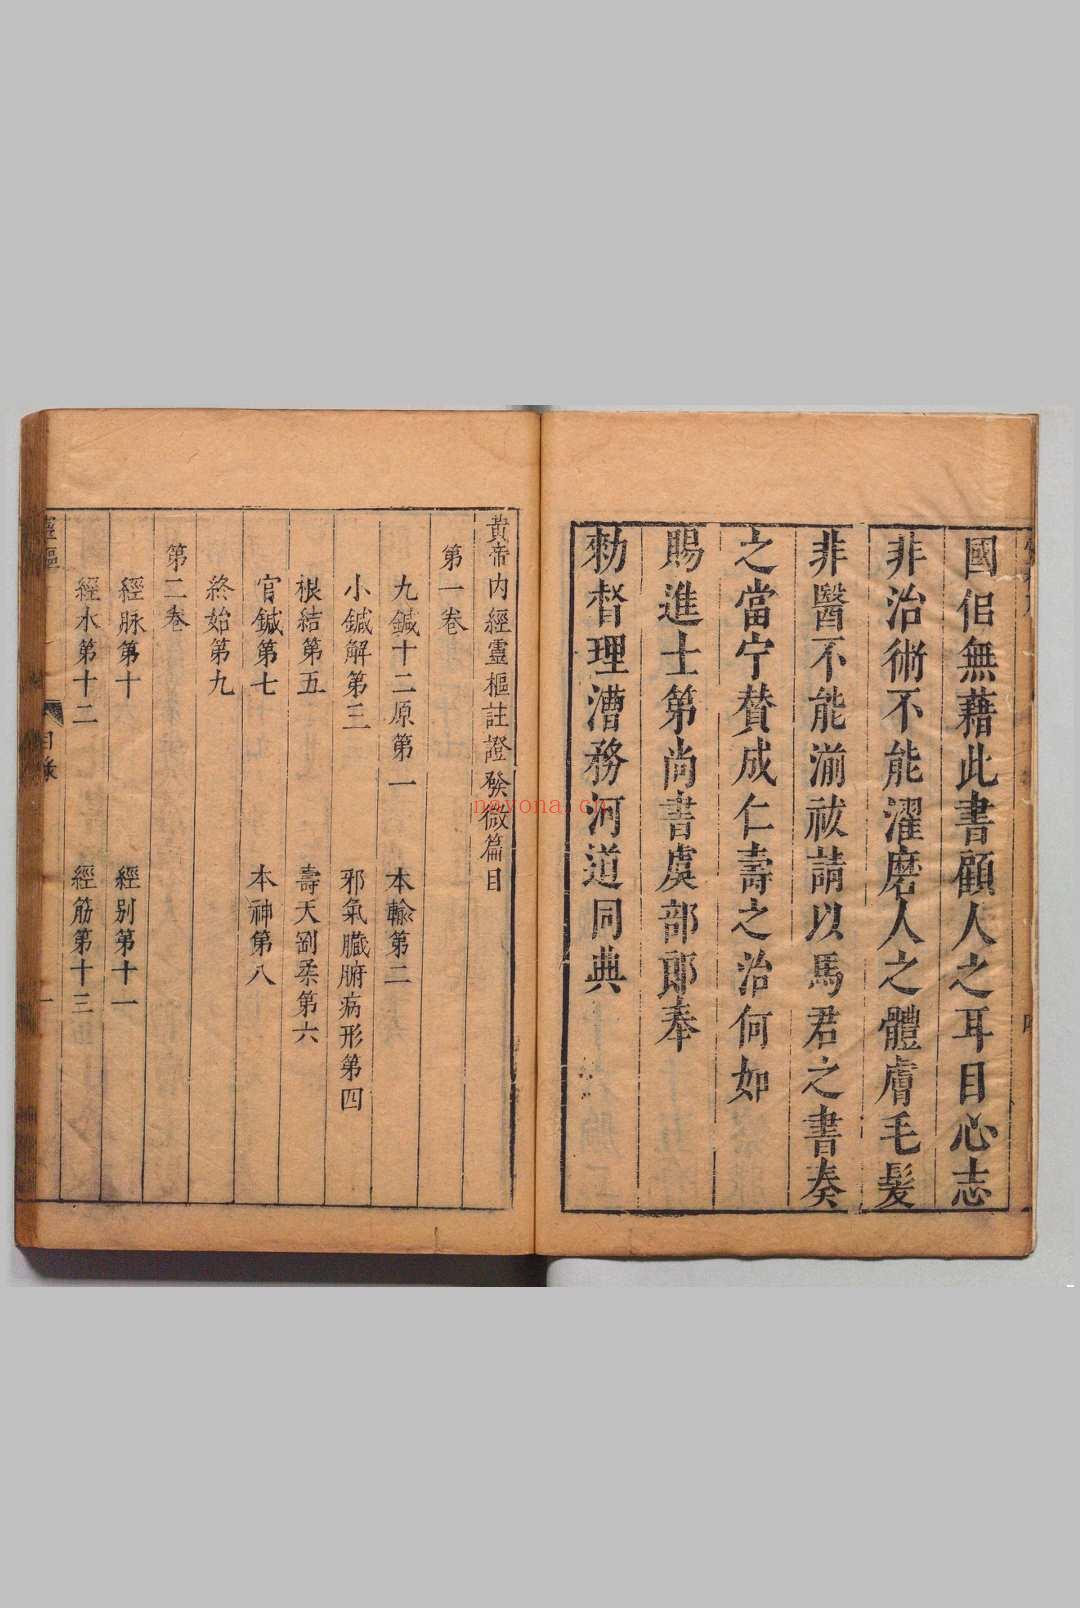 國侶無藉此書顧人之耳目心志
非治術不能濯磨人之體膚毛髮
非醫不能湔祓請以馬君之書奏
之當宁賛成仁壽之治何如
賜進士第尚書虞部郎奉
勑督理漕務河道同典
黄帝内經靈樞註證發微篇目
第一卷
九鍼十二原第一 本輸第二
小鍼解第三 邪氣臟腑病形第四
根結第五 壽夭剛柔第六
官鍼第七 本神第八
終始第九
第二卷
經脉第十 經别第十一
經水第十二 經筋第十三
靈樞 目錄 一
nayona.cn